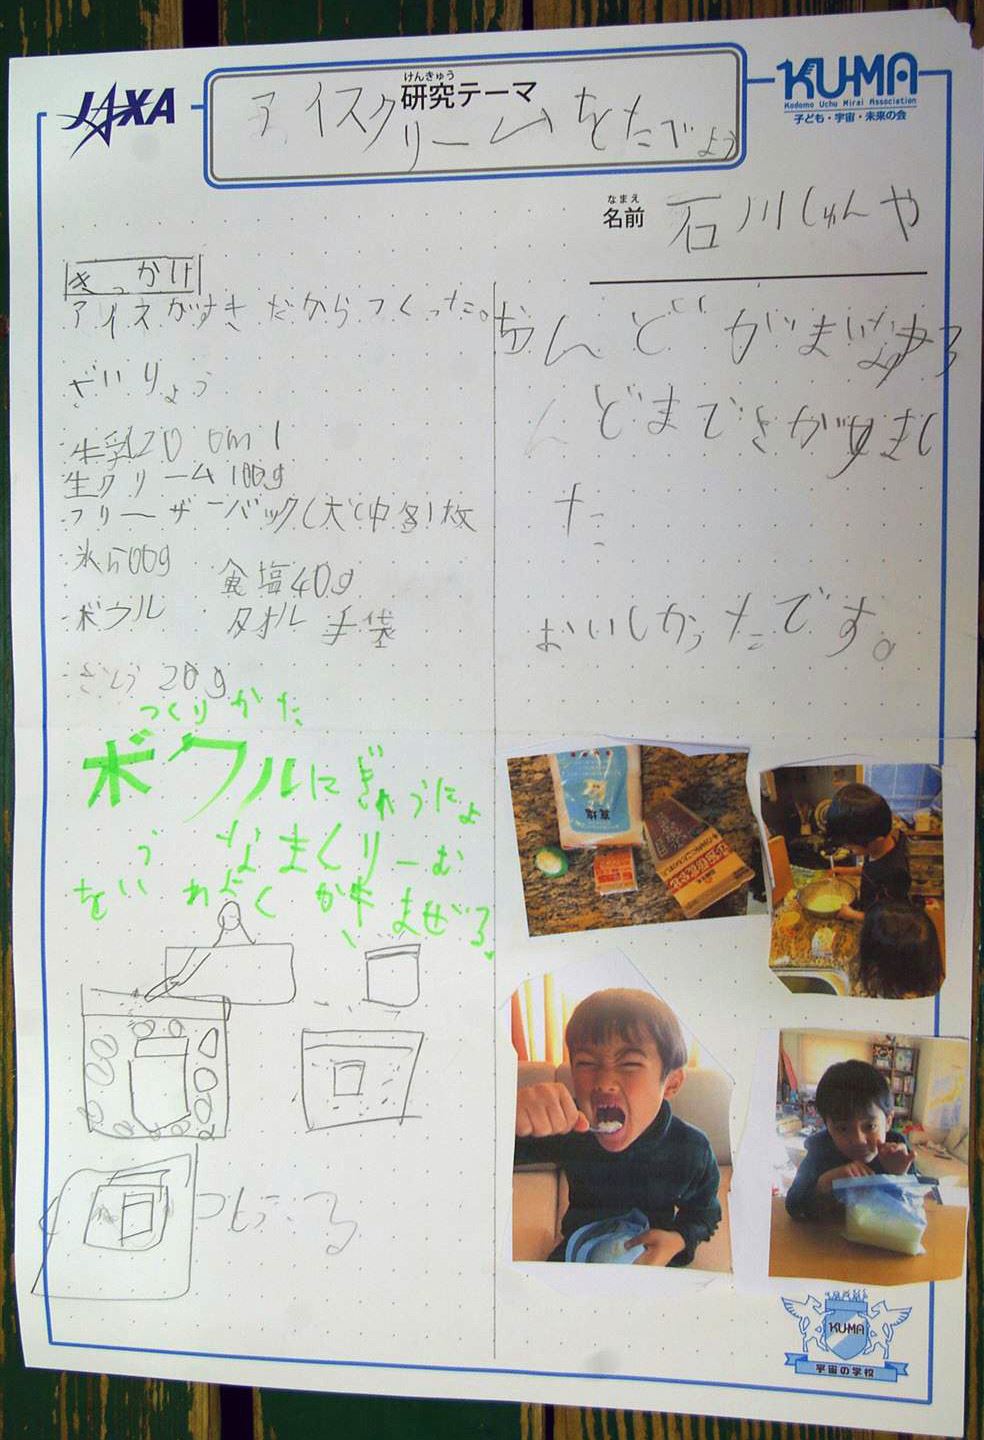 JAXA
けんきゅう
研究テーマ
アイスクリームをたべよう
KUMA
Kodomo Uchu Mirai Association
子ども・宇宙・未来の会
なまえ
名前 石川しゅんや
きっかけ
アイスがすきだからつくった。
ざいりょう
牛乳200ml
生クリーム100g
フリーザーバック(大(中各1枚
氷500g 食塩40g
ボウル タオル 手袋
さとう20g
つくりかた
ボウルにぎゅうにょ
う なまくりーむ
をいれ かきまぜる
おんどがまいなす
んどまでさがりまし
た
おいしかったです。
食塩
KUMA
宇宙の学校